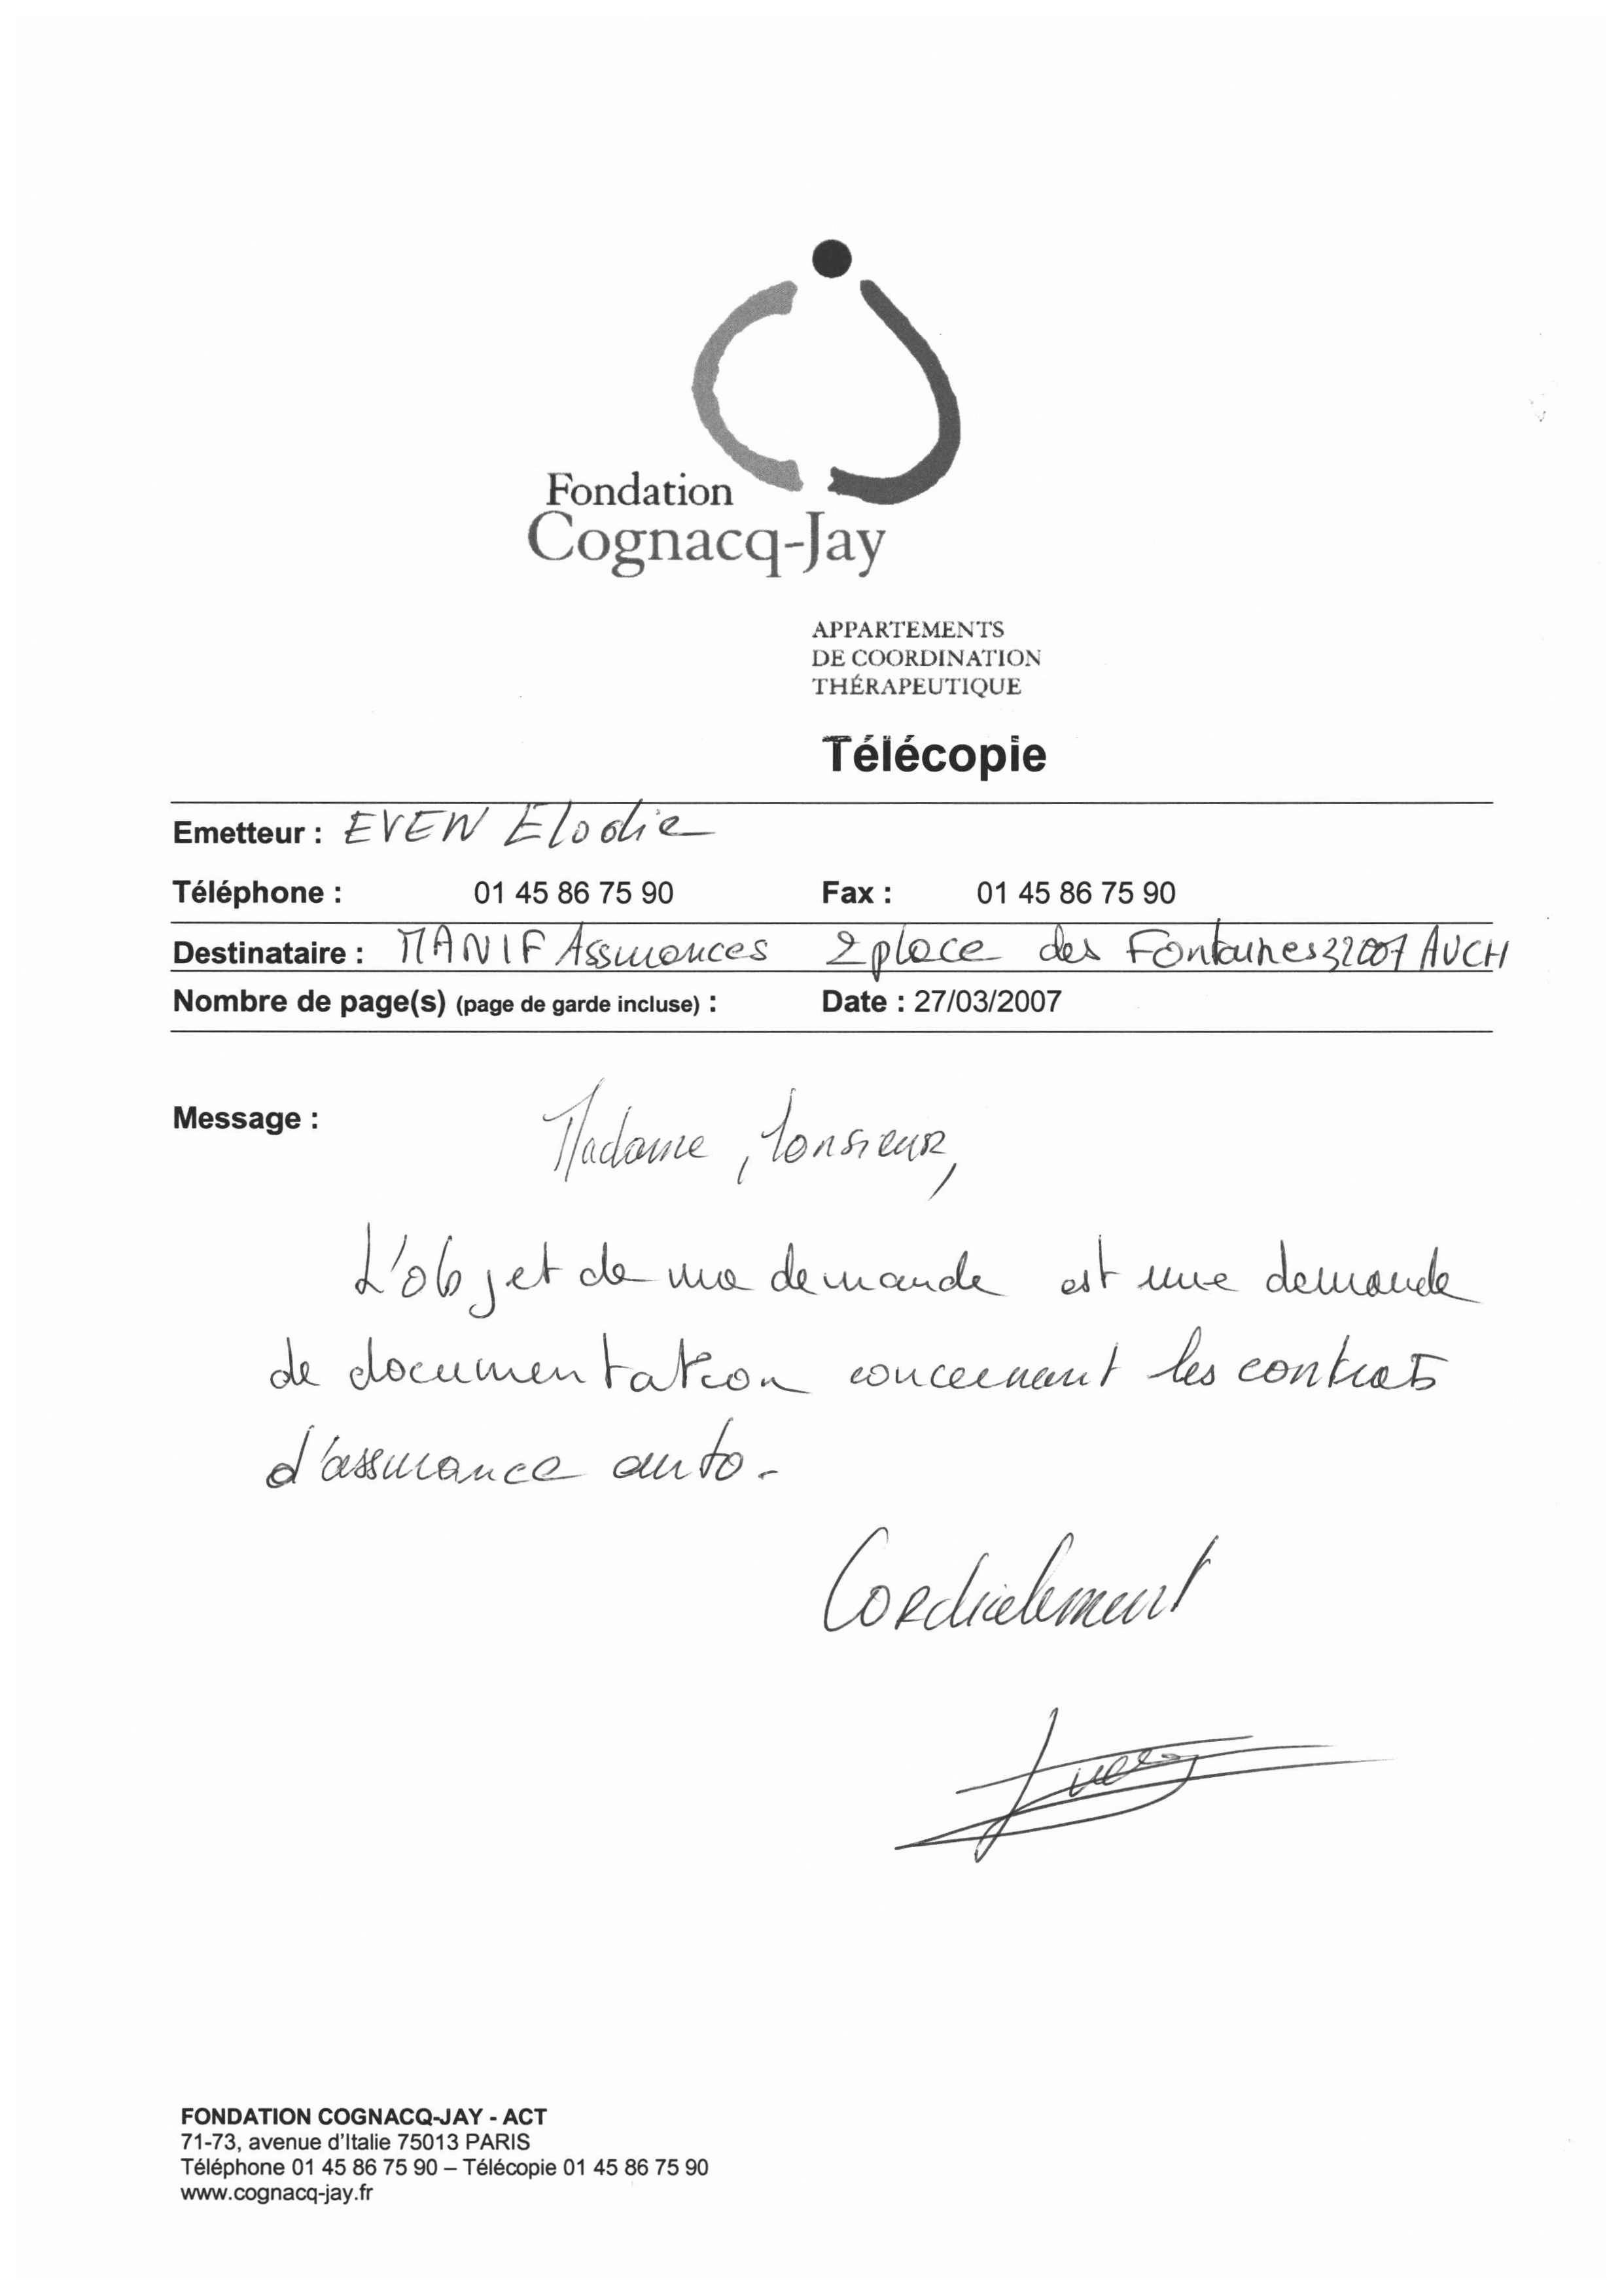 Fondation
Cognacq-Jay
APPARTEMENTS
DE COORDINATION
THÉRAPEUTIQUE
Télécopie
Emetteur : EVEN Elodie
Téléphone : 01 45 86 75 90 Fax : 01 45 86 75 90
Destinataire : MANIF Assurances 2 place des Fontaines 32007 AUCH
Nombre de page(s) (page de garde incluse) : Date : 27/03/2007
Message : Madame, Monsieur,
L'objet de ma demande est une demande
de documentation concernant les contrats
d'assurance auto.
Cordialement
FONDATION COGNACQ-JAY - ACT
71-73, avenue d'Italie 75013 PARIS
Téléphone 01 45 86 75 90 – Télécopie 01 45 86 75 90
www.cognacq-jay.fr